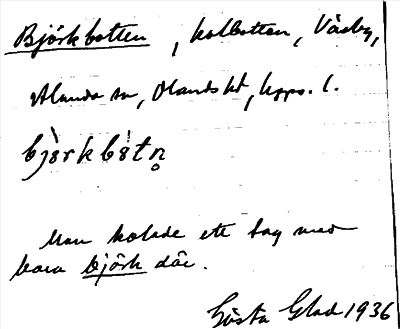 Björkbotten, kolbotten, Väsby,
Ålands sn, Olands hd, Upps. l.
bjö̀rkbɵ̀tn̥
Man kolade ett tag med
bara björk där.
Gösta Glad 1936